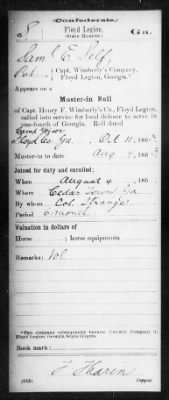 (Confederate.)
S Floyd Legion, G 14.
(State Guards.)
Saml E. Self
Col , Capt. Wimberly's Company,
Floyd Legion, Georgia.*
Appears on a
Muster-in Roll
of Capt. Henry F. Wimberly's Co., Floyd Legion,
called into service for local defense to serve in
one-fourth of Georgia. Roll dated
Floyd Co. Ga. Oct 11, 186
Muster-in to date Aug 7, 186
Joined for duty and enrolled:
When August 4, 186
Where Cedar Town, Ga
By whom Col. Strange
Period 6 months
Valuation in dollars of
Horse ; horse equipments
Remarks: Vol
*This company subsequently became Cavalry Company
Floyd Legion, Georgia State Guards.
Book mark:
F Tharin
Copyist.